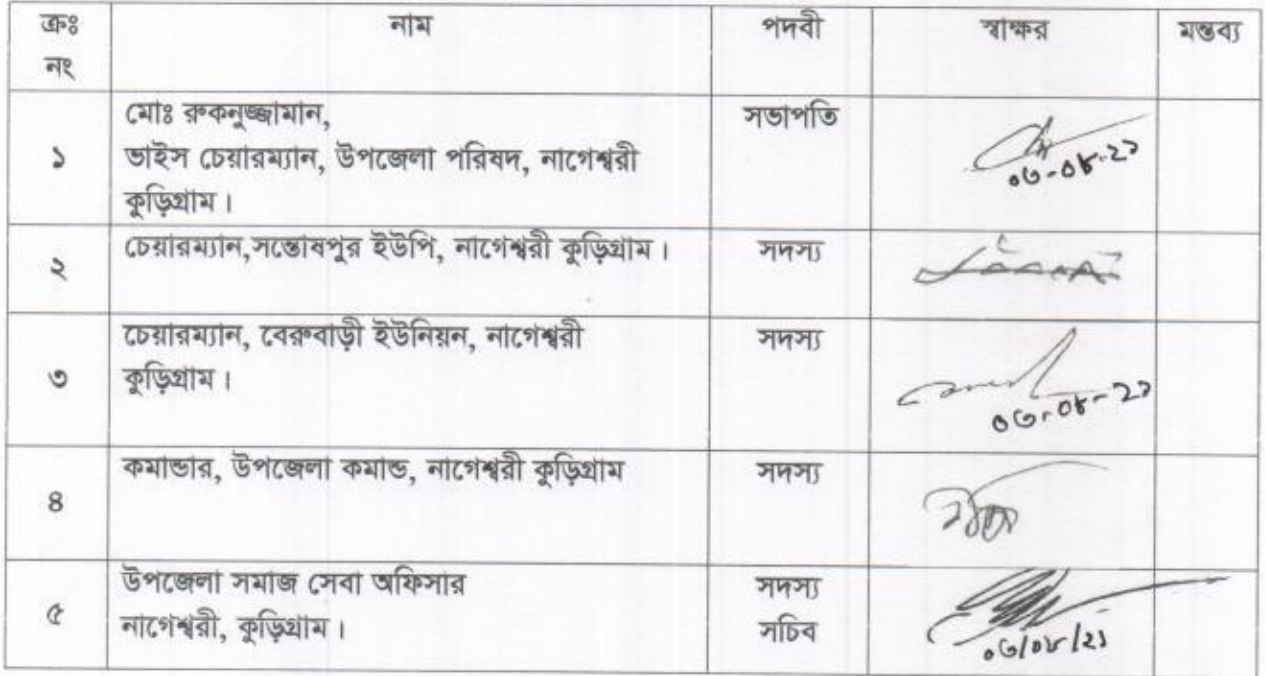 ক্রঃ নং নাম পদবী স্বাক্ষর মন্তব্য
১ মোঃ রুকনুজ্জামান, সভাপতি
ভাইস চেয়ারম্যান, উপজেলা পরিষদ, নাগেশ্বরী
কুড়িগ্রাম।
০৩-০৮-২১
২ চেয়ারম্যান,সন্তোষপুর ইউপি, নাগেশ্বরী কুড়িগ্রাম। সদস্য
৩ চেয়ারম্যান, বেরুবাড়ী ইউনিয়ন, নাগেশ্বরী সদস্য
কুড়িগ্রাম।
০৩-০৮-২১
৪ কমান্ডার, উপজেলা কমান্ড, নাগেশ্বরী কুড়িগ্রাম সদস্য
৫ উপজেলা সমাজ সেবা অফিসার সদস্য
নাগেশ্বরী, কুড়িগ্রাম। সচিব
০৩/০৮/২১